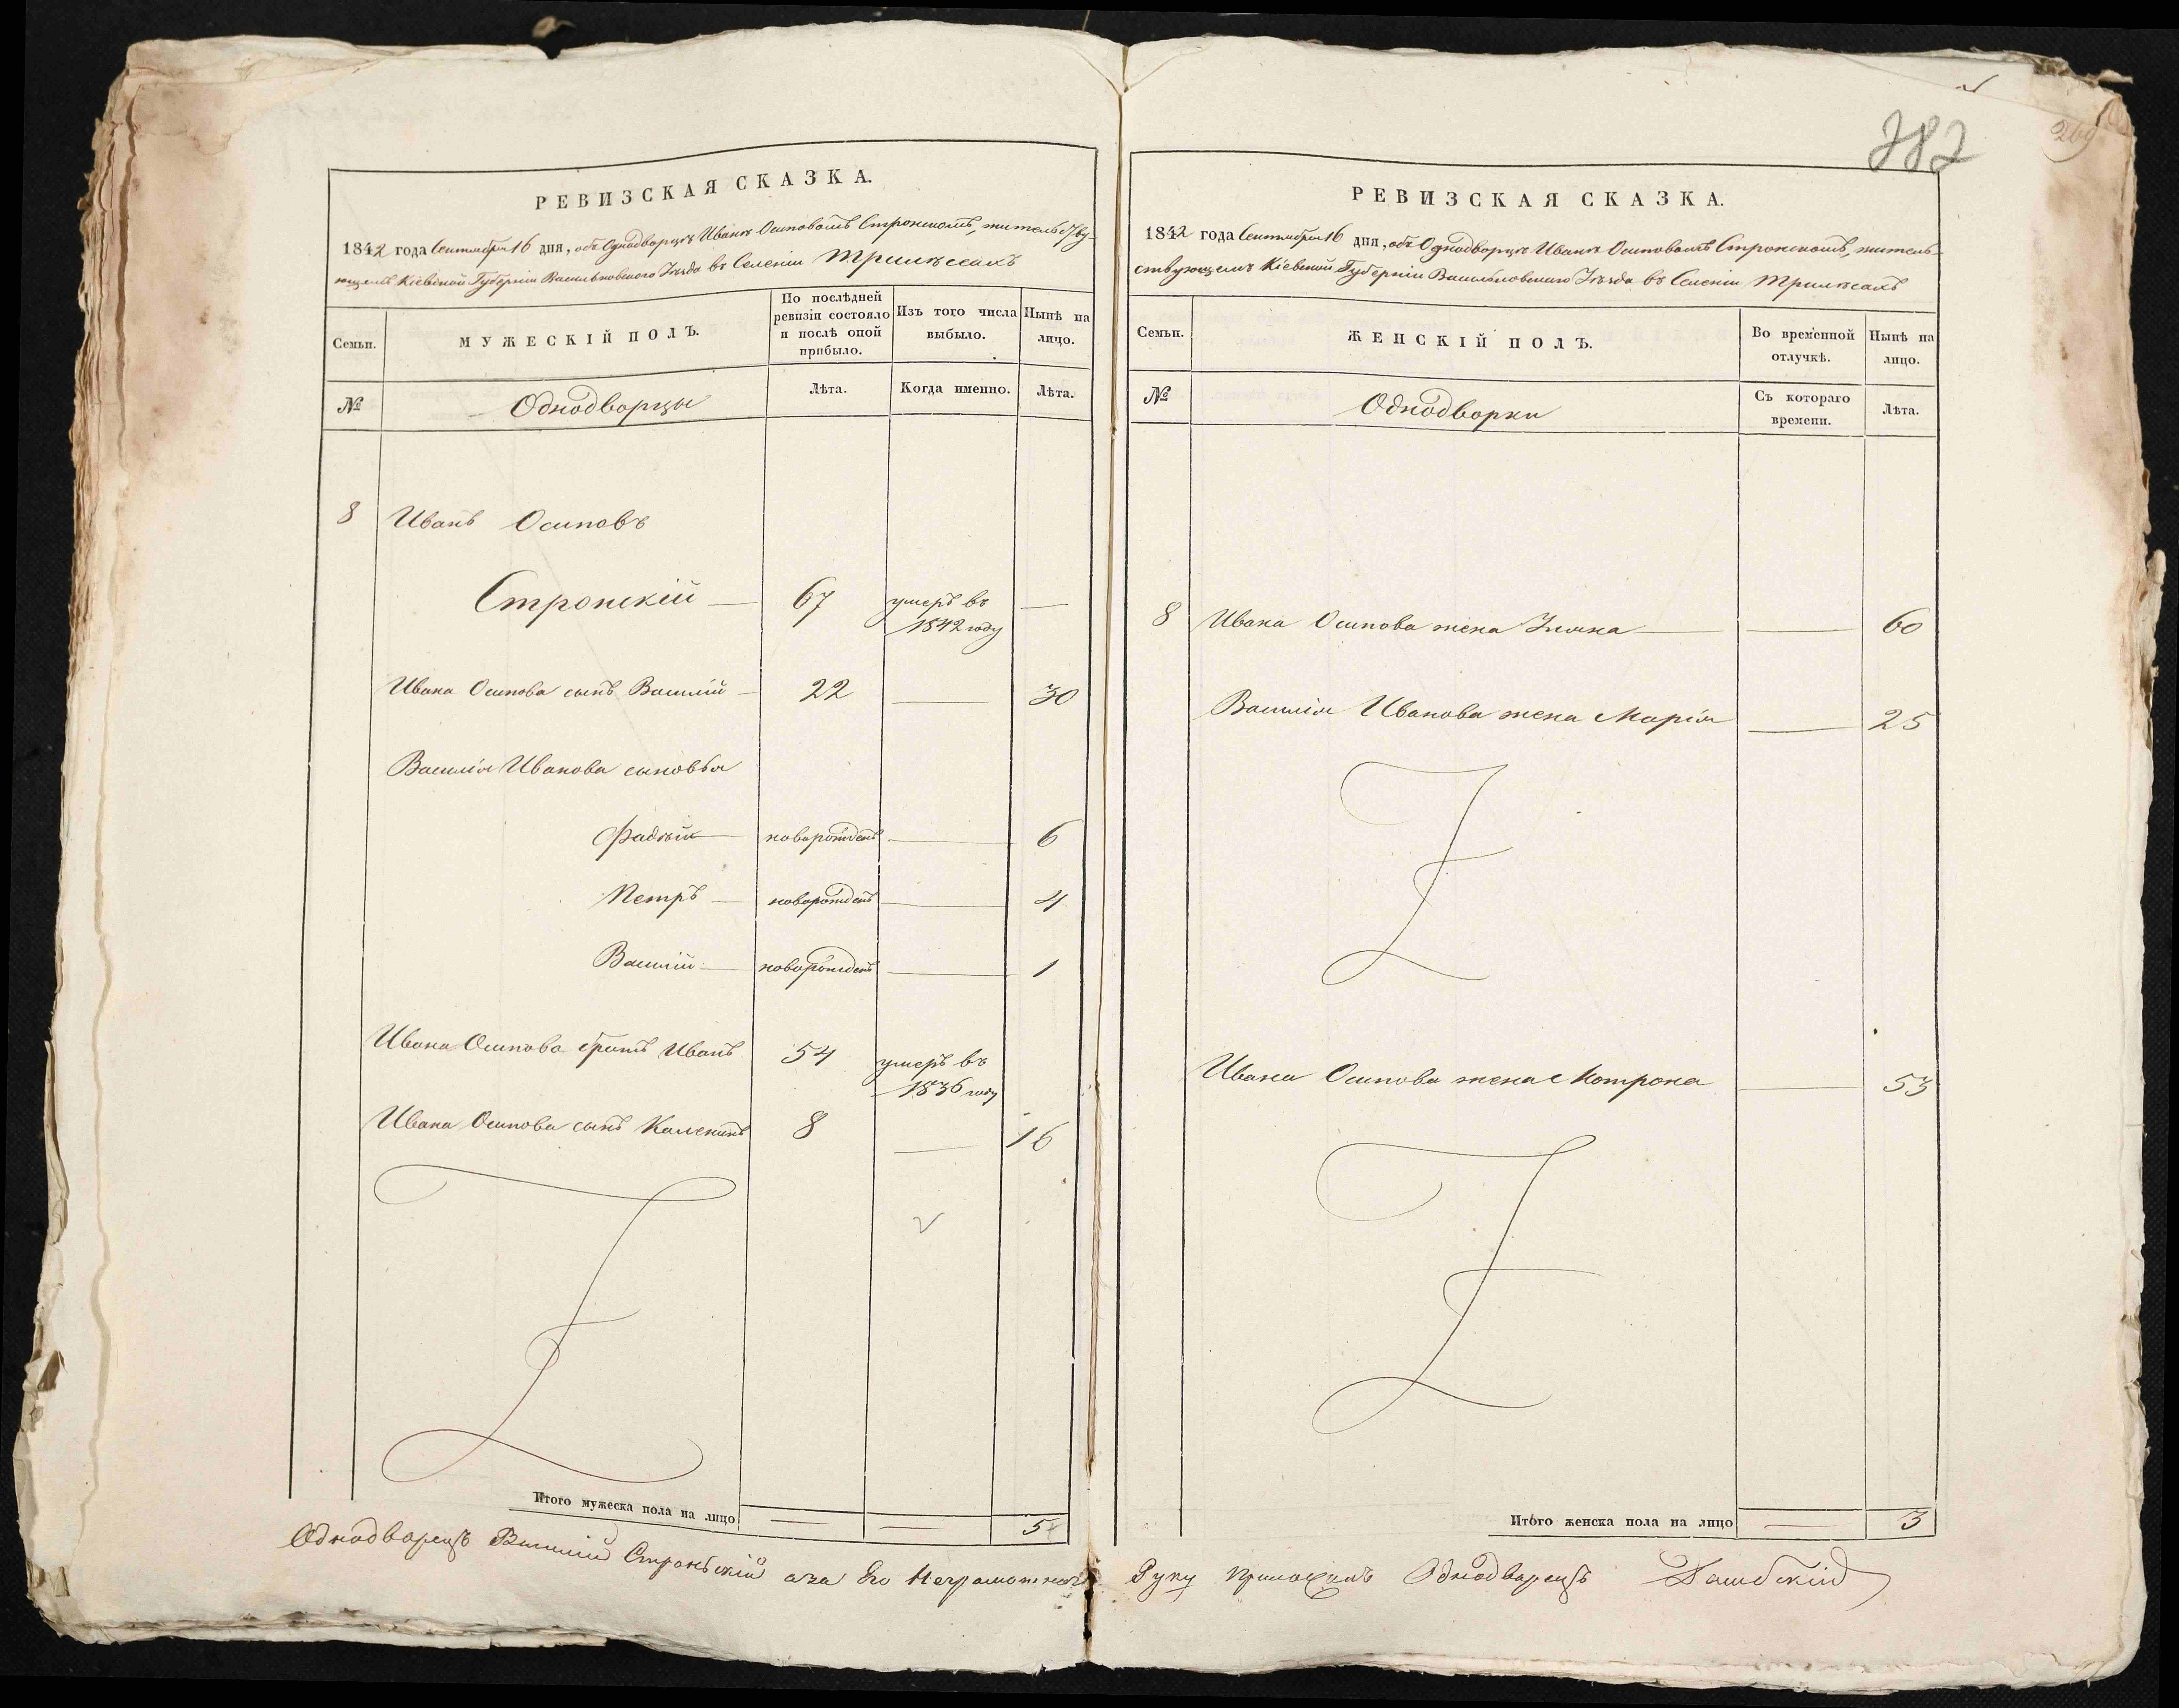 382
269
РЕВИЗСКАЯ СКАЗКА.
1842 года Сентября 16 дня, объ Однодворцѣ Иванѣ Осиповомъ Стронскомъ, жительству-
ющемъ Кіевской Губерніи Васильковскаго Уѣзда въ Селеніи Трилѣссахъ
Семьи.
МУЖЕСКІЙ ПОЛЪ.
По послѣдней
ревизіи состояло
и послѣ оной
прибыло.
Изъ того числа
выбыло.
Нынѣ на
лицо.
№
Однодворцы
Лѣта.
Когда именно.
Лѣта.
8 Иванъ Осиповъ
Стронскій — 67 умеръ въ —
1842 году
Ивана Осипова сынъ Василій — 22 — 30
Василія Иванова сыновья
Фадѣй — новорожденъ — 6
Петръ — новорожденъ — 4
Василій — новорожденъ — 1
Ивана Осипова братъ Иванъ 54 умеръ въ
1836 году
Ивана Осипова сынъ Каленикъ 8 — 16
Итого мужеска пола на лицо — — 5
Однодворецъ Василій Строньскій а за Его Неграмотного
РЕВИЗСКАЯ СКАЗКА.
1842 года Сентября 16 дня, объ Однодворцѣ Иванѣ Осиповомъ Стронскомъ, житель-
ствующемъ Кіевской Губерніи Васильковскаго Уѣзда въ Селеніи Трилѣсахъ
Семьи.
ЖЕНСКІЙ ПОЛЪ.
Во временной
отлучкѣ.
Нынѣ на
лицо.
№
Однодворки
Съ котораго
времени.
Лѣта.
8 Ивана Осипова жена — — 60
Василія Иванова жена Марія — 25
Ивана Осипова жена Мотрона — 53
Итого женска пола на лицо — 3
Руку приложилъ Однодворецъ